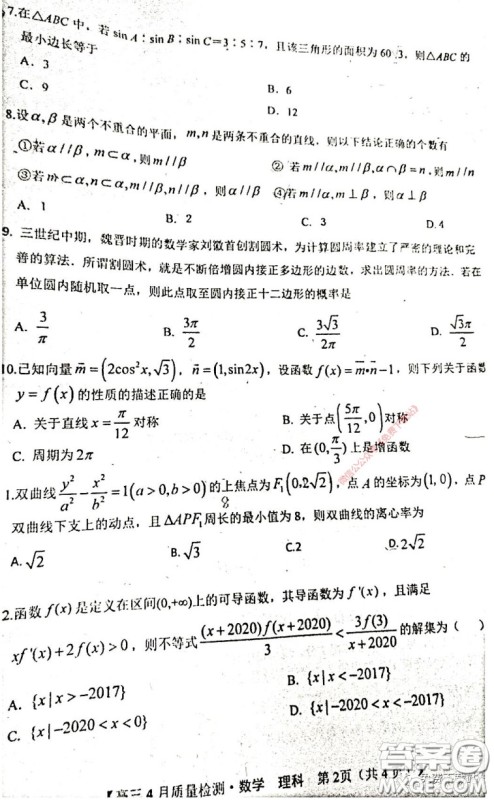 7.在△ABC 中，若 sin A∶sin B∶sin C=3∶5∶7，且该三角形的面积为 60 3，则△ABC 的
最小边长等于
A. 3 B. 6
C. 9 D. 12
8.设α,β是两个不重合的平面，m,n是两条不重合的直线．则以下结论正确的个数有
①若α//β, m⊂α,则m//β ② 若m//α, m//β,α∩β=n，则m//n
③若m⊂α,n⊂α,m//β,n//β，则α//β ④若α⊥β,m⊥α，则m//β
A. 1 B. 2 C. 3 D. 4
9. 三世纪中期，魏晋时期的数学家刘徽首创割圆术，为计算圆周率建立了严密的理论和完
善的算法．所谓割圆术，就是不断倍增圆内接正多边形的边数，求出圆周率的方法．若在
单位圆内随机取一点，则此点取至圆内接正十二边形的概率是
A. 3/π B. 3π/2 C. 3√3/2π D. √3π/2
10.已知向量 m=(2cos²x,√3), n=(1,sin2x)，设函数 f(x)=m·n-1，则下列关于函数
y=f(x)的性质的描述正确的是
A. 关于直线 x=π/12 对称 B. 关于点(5π/12,0)对称
C. 周期为 2π D. 在(0,π/3)上是增函数
1.双曲线 y²/a² - x²/b² =1(a>0,b>0)的上焦点为F₁(0,2√2)，点 A 的坐标为(1,0)，点 P
双曲线下支上的动点，且△APF₁周长的最小值为 8，则双曲线的离心率为
8
A.√2 B.√3 C.2 D.2√2
2.函数 f(x)是定义在区间(0,+∞)上的可导函数，其导函数为 f'(x)，且满足
xf'(x)+2f(x)>0，则不等式 (x+2020)f(x+2020)/3 < 3f(3)/x+2020 的解集为（ ）
A. {x|x>-2017} B. {x|x<-2017}
C. {x|-2020<x<0} D. {x|-2020<x<-2017}
【高三 4 月质量检测·数学 理科 第 2页（共 4 页）】